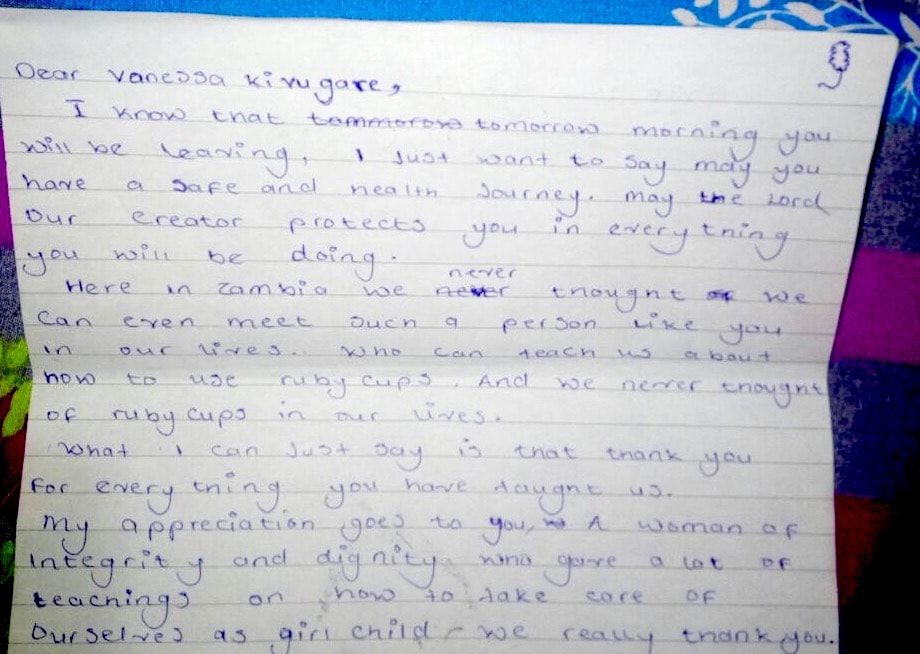 Dear Vanessa Kivugare,
I know that tommorow tomorrow morning you
will be leaving, I just want to say may you
have a safe and health journey. may the Lord
Our creator protects you in every thing
you will be doing.
never
Here in Zambia we never thought of we
can even meet such a person like you
in our lives.. who can teach us about
how to use ruby cups. And we never thought
of ruby cups in our lives.
What I can just say is that thank you
for every thing you have taught us.
My appreciation goes to you, A woman of
integrity and dignity who gave a lot of
teachings on how to take care of
Ourselves as girl child - we really thank you.